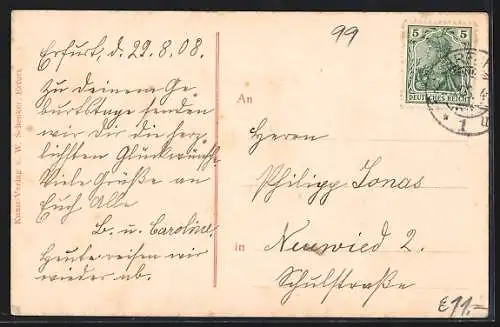 99
Erfurt, d. 29.8.08.
Zu Deinem Ge-
burtstage senden
wir Dir die herz-
lichsten Glückwünsche.
Viele Grüße an
Euch Alle
B. u. Caroline.
Heute reisen wir
wieder ab.
Kunst-Verlag v. W. Schenker, Erfurt
5 5
DEUTSCHES REICH
* 1
An
Herrn
Philipp Jonas
in Neuwied 2.
Schulstraße
£11,-